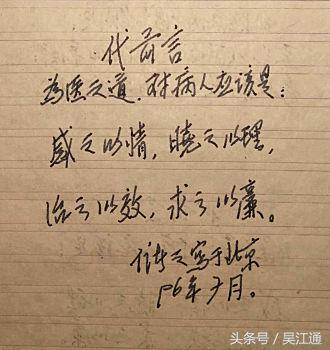 代前言
為医之道，对病人应该是：
感之以情，曉之以理，
治之以效，求之以廉。
写于北京
96年7月。
头条号 / 吴江通